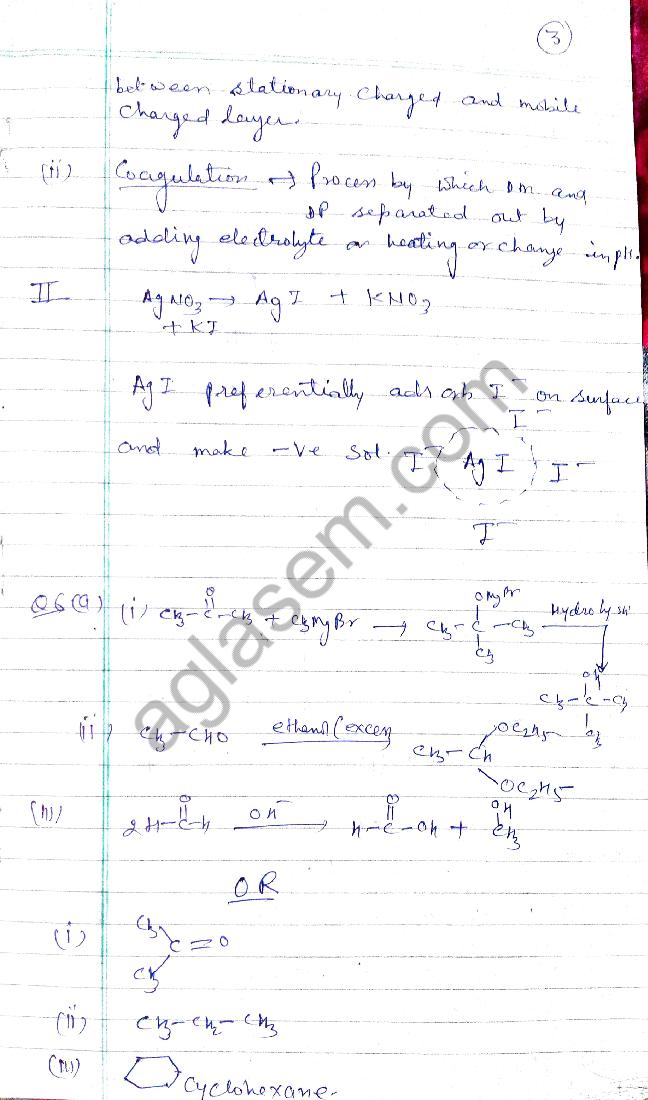 3
between stationary charged and mobile
charged layer.
(ii) Coagulation → Process by which DM and
DP separated out by
adding electrolyte or heating or change in pH.
II AgNO3 → AgI + KNO3
+ KI
AgI preferentially adsorb I⁻ on surface
I⁻
and make -ve sol. I⁻ AgI I⁻
I⁻
OMgBr
Q6(a) (i) CH3-C-CH3 + CH3MgBr → CH3-C-CH3 Hydrolysis
O
CH3
OH
CH3-C-CH3
CH3
(ii) CH3-CHO ethanol (excess) CH3-CH
OC2H5
OC2H5
(iii) 2H-C-H OH⁻ → H-C-OH + CH3
O
O
OH
OR
(i) CH3
C=O
CH3
(ii) CH3-CH2-CH3
(iii) Cyclohexane.
aglasem.com